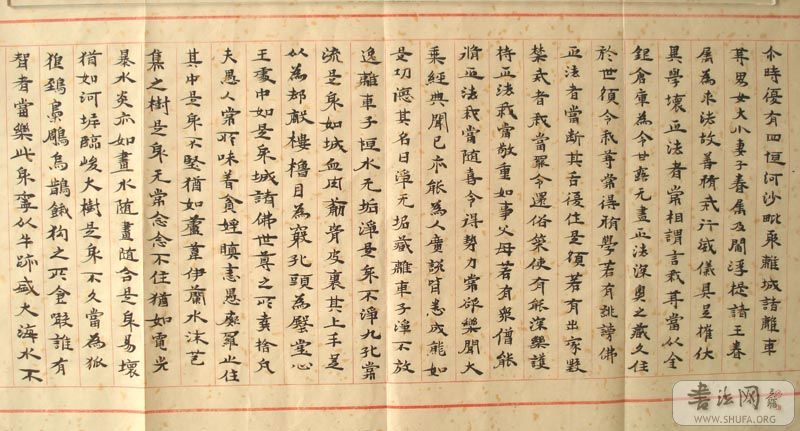 尒時復有四恒河沙毗乘離城諸離車
等男女大小妻子眷属及閻浮提諸王眷
属為求法故善脩戒行威儀具足摧伏
異學壞正法者常相謂言我等當以全
銀倉庫為令甘露无盡正法深奥之藏久住
於世願令我等常得脩學若有誹謗佛
正法者當断其舌復住是願若有出家毀
禁戒者我當罷令還俗策使有能深樂護
持正法我當敬重如事父母若有衆僧能
脩正法我當随喜令得勢力常欲樂聞大
乘經典聞已亦能為人廣說皆悉成就如
是功德其名曰淨无垢藏離車子淨不放
逸離車子恒水无垢淨是身不淨九孔常
流是身如城血肉筋骨皮裹其上手足
以為却敵樓櫓目為竅孔頭為殿堂心
王處中如是身城諸佛世尊之所棄捨凡
夫愚人常所味著貪婬瞋恚愚癡羅止住
其中是身不堅猶如蘆葦伊蘭水沫芭
集之樹是身无常念念不住猶如電光
暴水炎亦如畫水随畫随合是身易壞
猶如河岸臨峻大樹是身不久當為狐
狼鵄梟鵰鳥鵲餓狗之所食噉誰有
智者當樂此身寧以牛跡盛大海水不
书法网
WWW.SHUFA.ORG